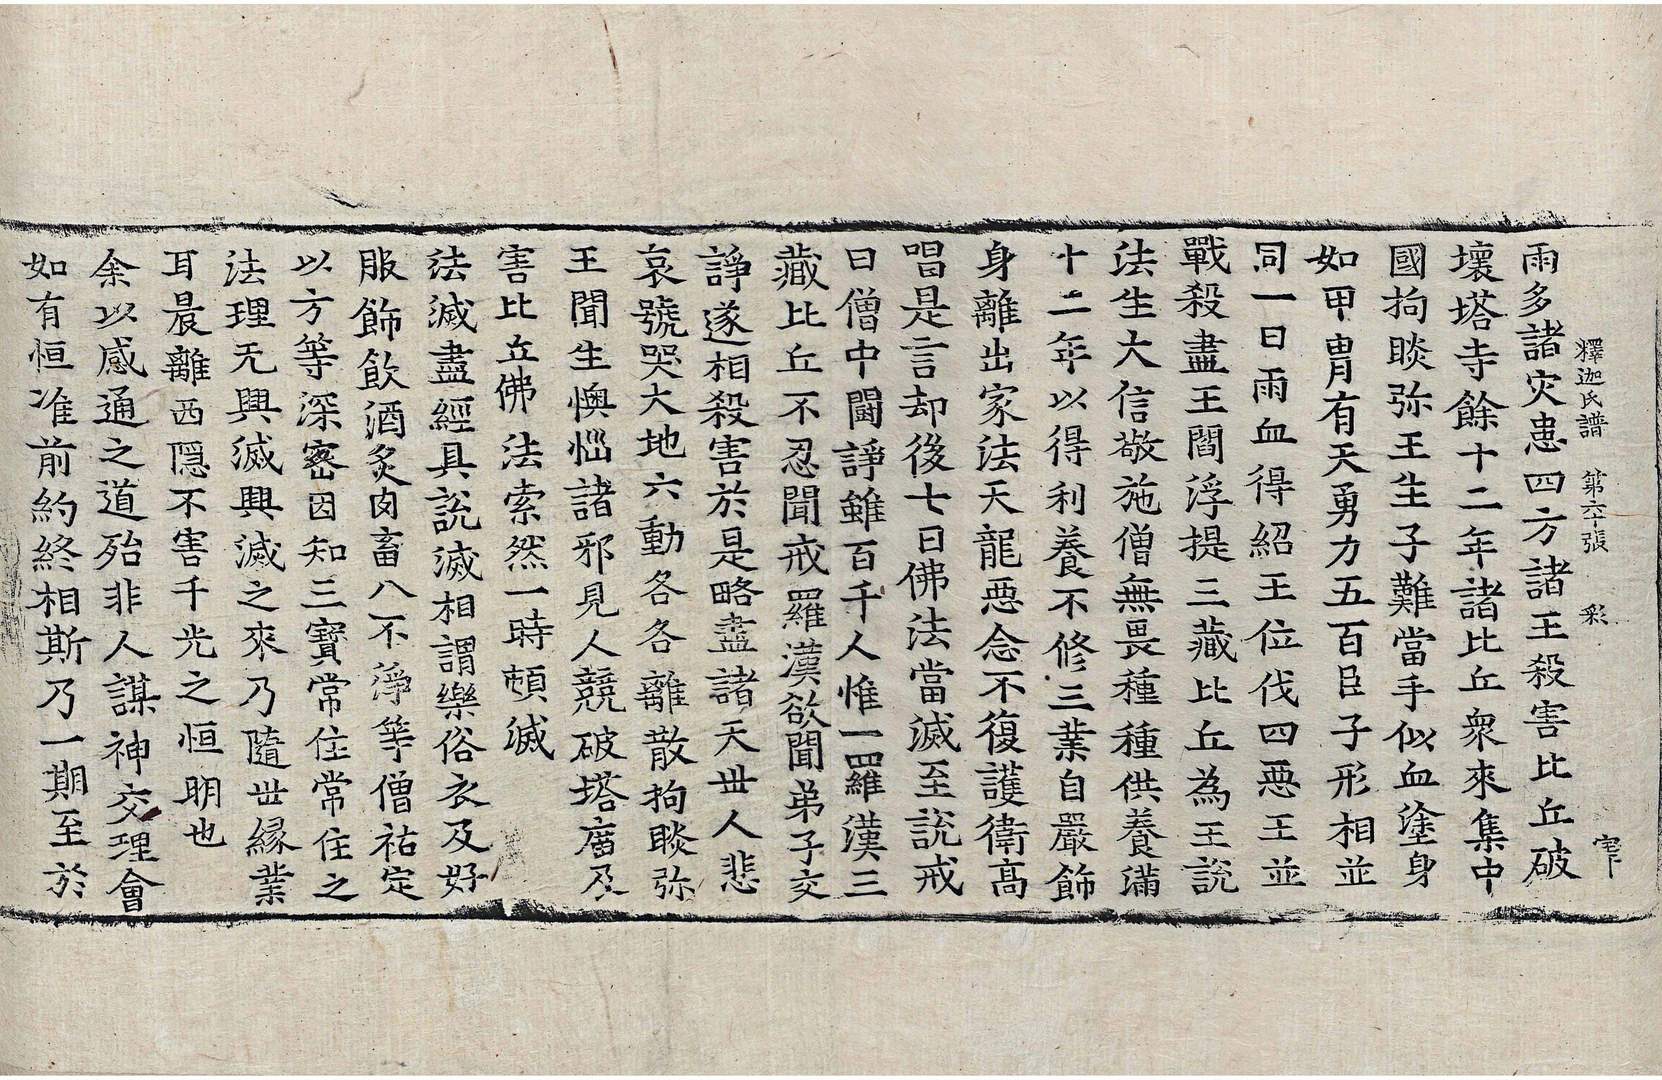 釋迦氏譜 第六十張 彩
雨多諸灾患四方諸王殺害比丘破
壞塔寺餘十二年諸比丘衆來集中
國拘睒弥王生子難當手似血塗身
如甲冑有天勇力五百臣子形相並
同一日雨血得紹王位伐四惡王並
戰殺盡王閻浮提三藏比丘為王說
法生大信敬施僧無畏種種供養滿
十二年以得利養不修三業自嚴飾
身離出家法天龍惡念不復護衛高
唱是言却後七日佛法當滅至說戒
日僧中鬪諍雖百千人惟一羅漢三
藏比丘不忍聞戒羅漢欲聞弟子交
諍遂相殺害於是略盡諸天世人悲
哀號哭大地六動各各離散拘睒弥
王聞生懊惱諸邪見人競破塔廟及
害比丘佛法索然一時頓滅
法滅盡經具說滅相謂樂俗衣及好
服飾飲酒炙肉畜八不淨等僧祐定
以方等深密因知三寶常住常住之
法理无興滅興滅之來乃隨世緣業
耳晨離西隱不害千光之恒明也
余以感通之道殆非人謀神交理會
如有恒准前約終相斯乃一期至於